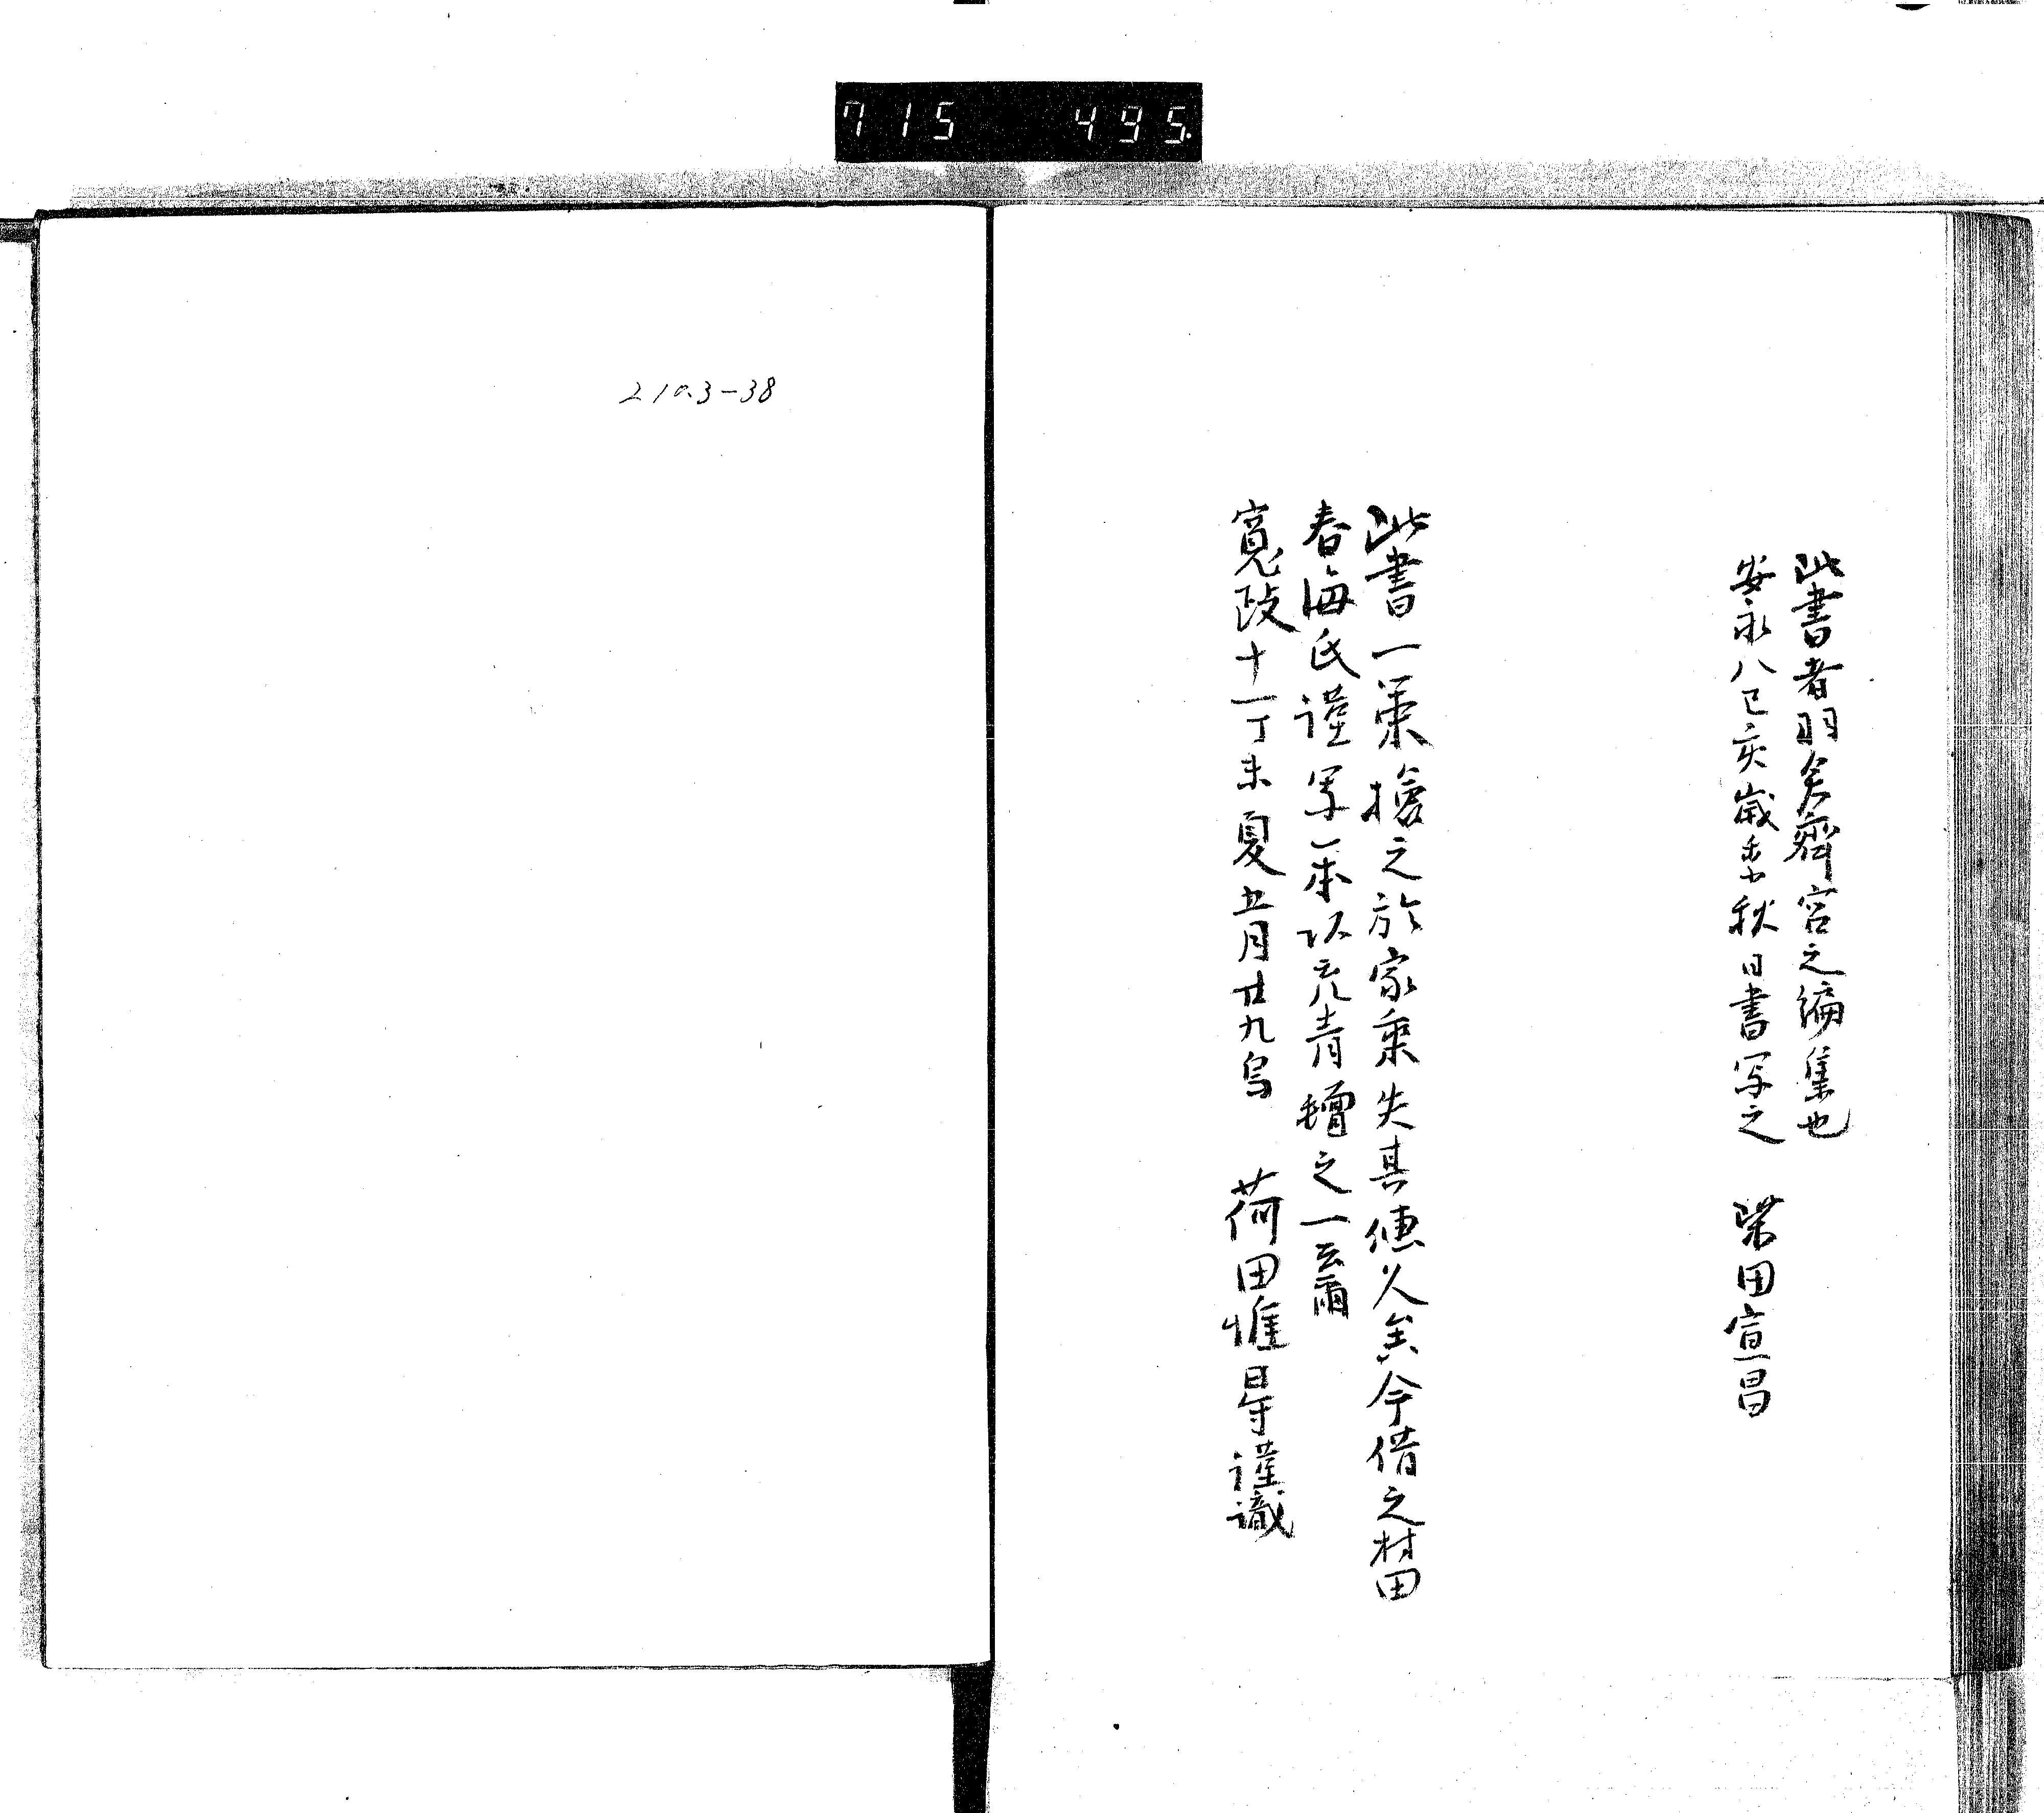 715 495
此書者羽倉齋宮之編集也
安永八己亥歳季秋日書写之 柴田宣昌
此書一策擔之於家乗失其傳久矣今借之村田
春海氏謹写一本以充青氈之一云爾
寛政十一丁未夏五月廿九烏 荷田惟得謹識
210.3-38